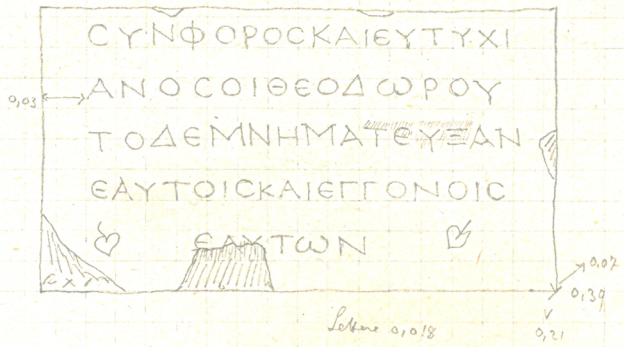 CΥΝΦΟΡΟCΚΑΙΕΥΤΥΧΙ
ΑΝΟCΟΙΘΕΟΔΩΡΟΥ
0,03
ΤΟΔΕΜΝΗΜΑΤΕΥΞΑΝ
ΕΑΥΤΟΙCΚΑΙΕΓΓΟΝΟΙC
ΕΑΥΤΩΝ
0,07
0,39
Lettere 0,018
0,21